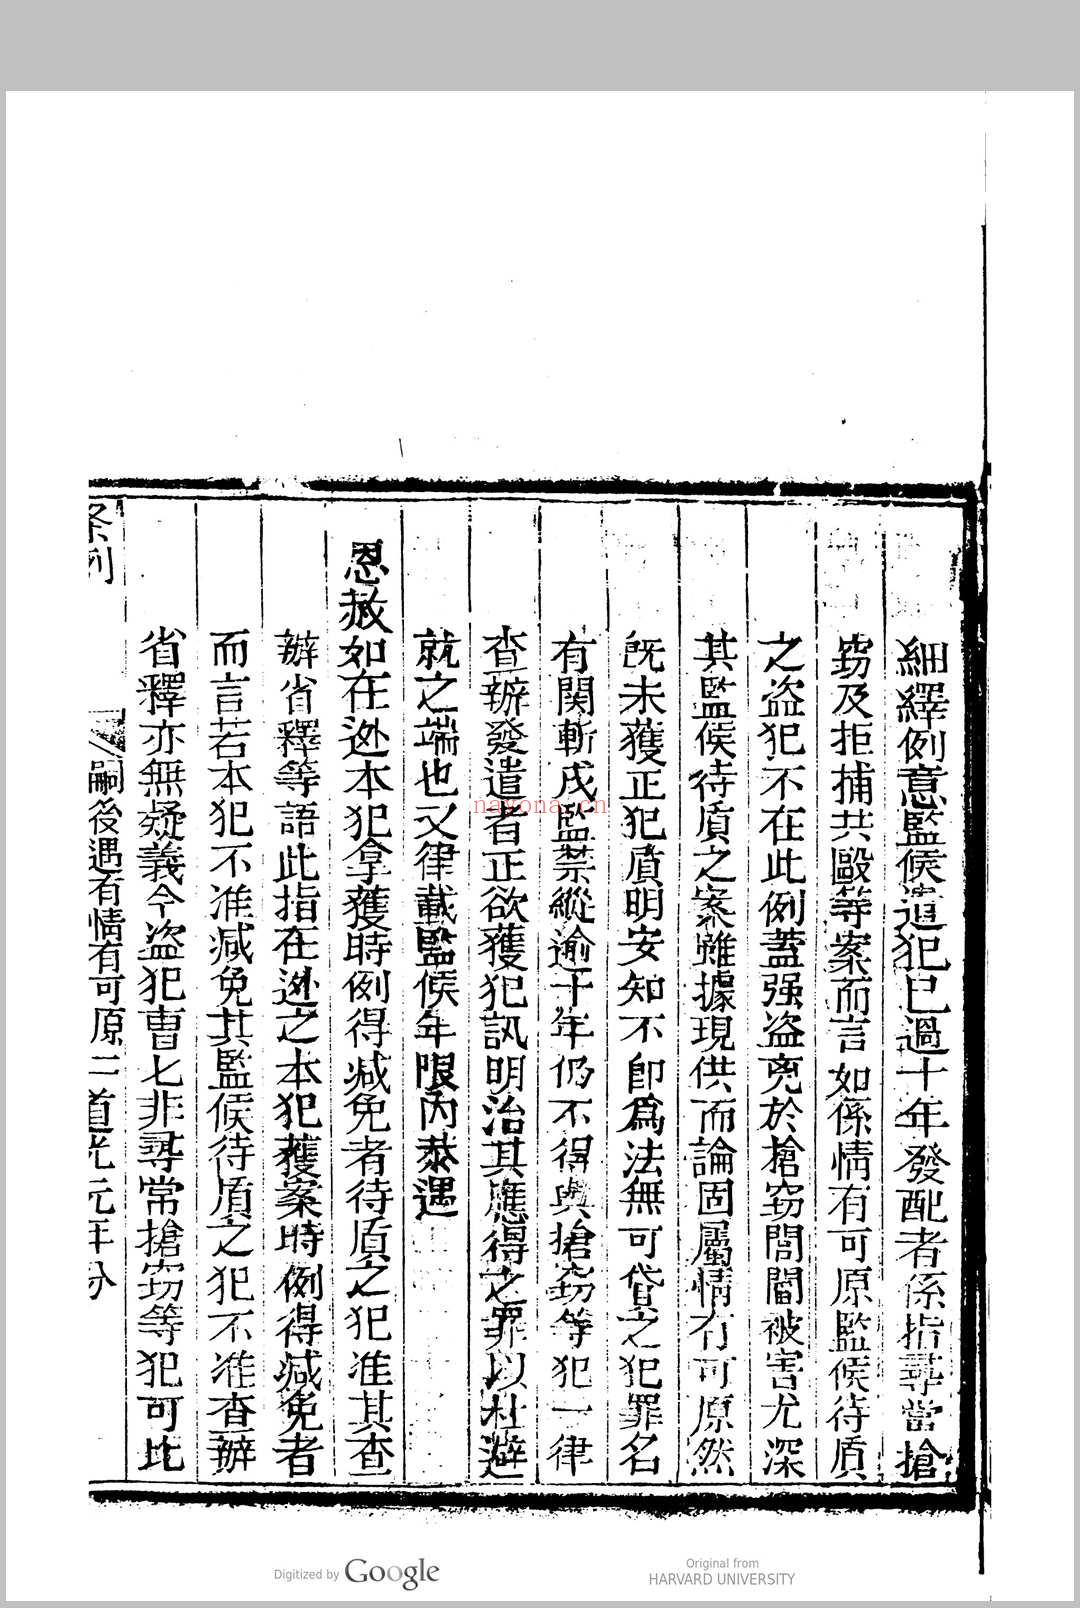 細繹例意監候遣犯已過十年發配者係指尋當搶
竊及拒捕共毆等案而言如係情有可原監候待質
之盜犯不在此例蓋强盜兇於搶竊閭閻被害尤深
其監候待質之案雖據現供而論固屬情有可原然
旣未獲正犯質明安知不卽爲法無可貸之犯罪名
有関斬戍監禁縱逾十年仍不得與搶竊等犯一律
查辦發遣者正欲獲犯訊明治其應得之罪以杜避
就之端也又律載監候年限內恭遇
恩赦如在逃本犯拿獲時例得减免者待質之犯准其查
辦省釋等語此指在逃之本犯獲案時例得减免者
而言若本犯不准减免其監候待質之犯不准查辦
省釋亦無疑義今盜犯曹七非尋常搶竊等犯可比
条例
嗣後遇有情有可原 二 道光元年分
nayona.cn
Digitized by Google
Original from
HARVARD UNIVERSITY